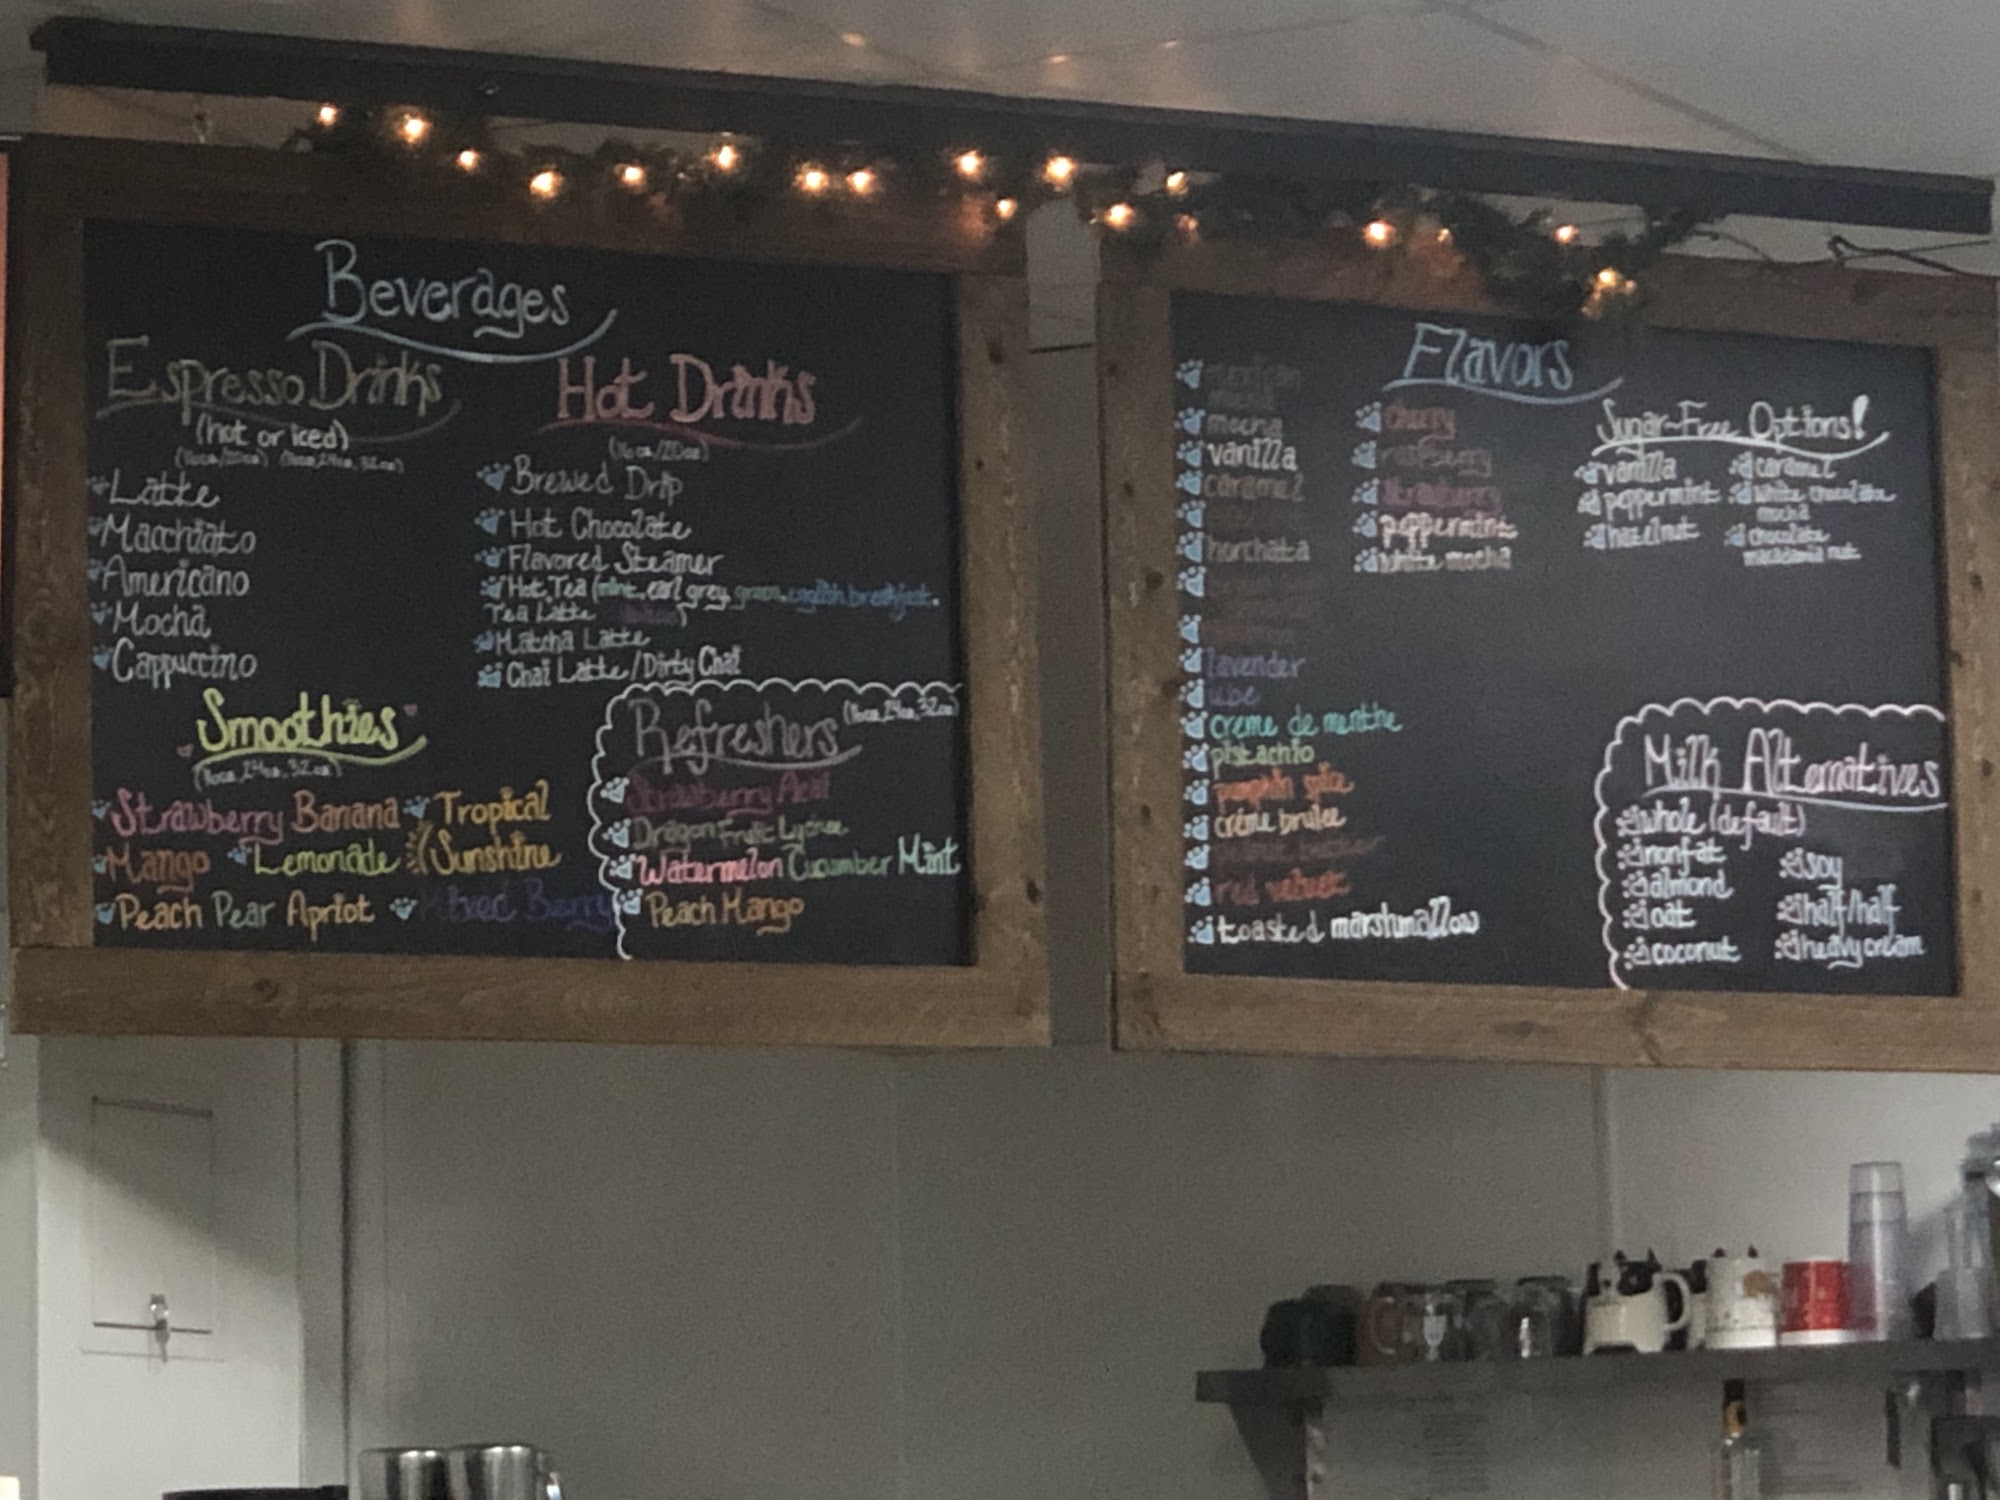 Beverages
Espresso Drinks
(hot or iced)
(16oz/20oz) (16oz, 24oz, 32oz)
Latte
Macchiato
Americano
Mocha
Cappuccino
Hot Drinks
(16oz/20oz)
Brewed Drip
Hot Chocolate
Flavored Steamer
Hot Tea (mint, earl grey, green, english breakfast,
Tea Latte
Matcha Latte
Chai Latte/Dirty Chai
Smoothies
(16oz, 24oz, 32oz)
Strawberry Banana Tropical
Mango Lemonade Sunshine
Peach Pear Apriot Mixed Berry
Refreshers (16oz, 24oz, 32oz)
Strawberry Acai
Dragon Fruit Lychee
Watermelon Cucumber Mint
Peach Mango
Flavors
mexican
mocha
mocha
vanilla
caramel
horchata
lavender
ube
creme de menthe
pistachio
pumpkin spice
créme brulee
peanut butter
red velvet
toasted marshmallow
cherry
raspberry
strawberry
peppermint
white mocha
Sugar-Free Options!
vanilla
peppermint
hazelnut
caramel
white chocolate
mocha
chocolate
macadamia nut
Milk Alternatives
whole (default)
nonfat
almond
oat
coconut
soy
half/half
heavy cream